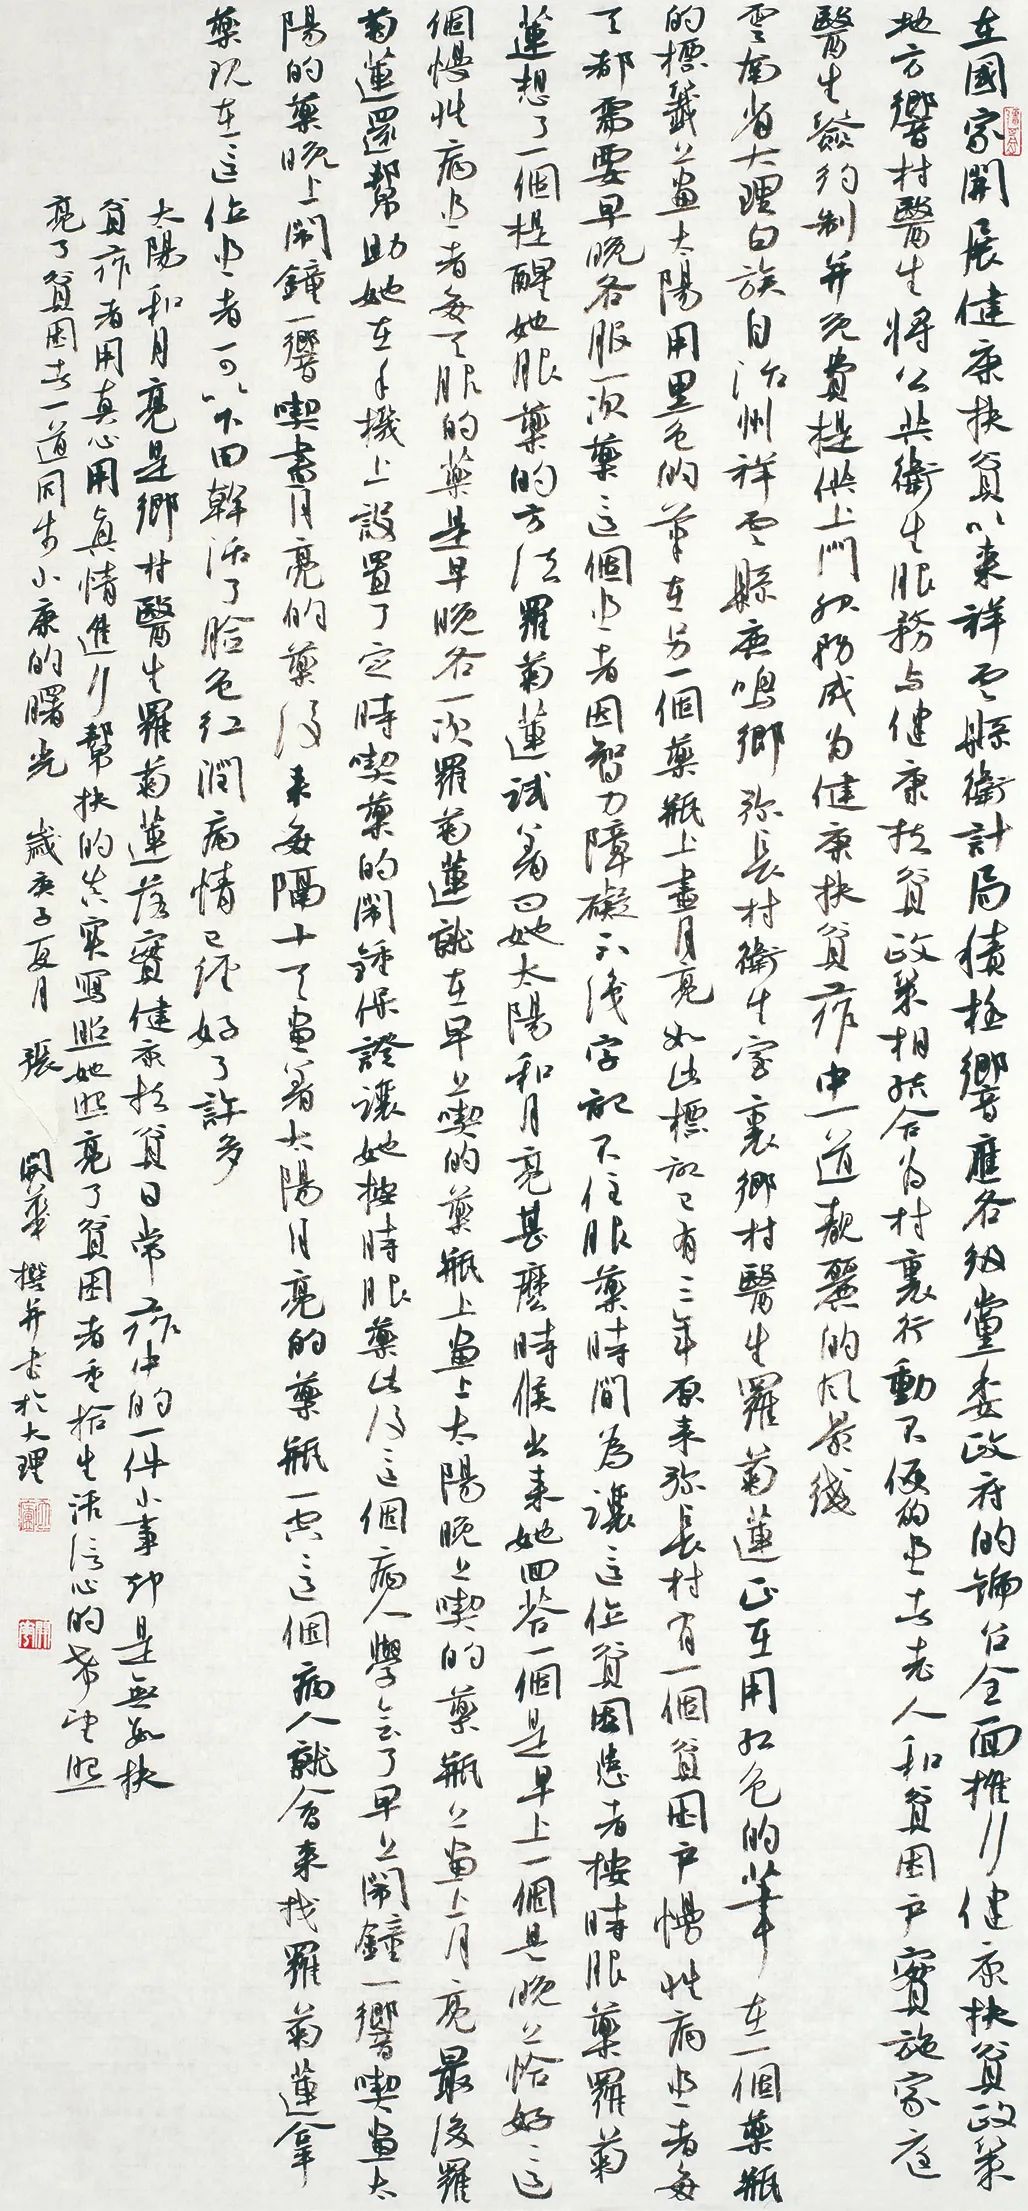 在國家開展健康扶貧以來祥雲縣衛計局積極響應各級黨委政府的號召全面推行健康扶貧政策
地方鄉村醫生將公共衛生服務与健康扶貧政策相結合為村裏行動不便的患者老人和貧困户實施家庭
醫生簽約制并免費提供上門服務成为健康扶貧工作中一道靓麗的风景线
雲南省大理白族自治州祥雲縣鹿鳴鄉弥長村衛生室裏鄉村醫生羅菊蓮正在用红色的筆在一個藥瓶
的標籤上畫太陽用黑色的筆在另一個藥瓶上畫月亮如此標記已有三年原来弥長村有一個貧困户慢性病患者每
天都需要早晚各服一次藥這個患者因智力障礙不識字記不住服藥時間為讓這位貧困患者按時服藥羅菊
蓮想了一個提醒她服藥的方法羅菊蓮試着问她太陽和月亮甚麼時候出来她回答一個是早上一個是晚上恰好這
個慢性病患者每天服的藥是早晚各一次羅菊蓮就在早上喫的藥瓶上畫上太陽晚上喫的藥瓶上畫上月亮最後羅
菊蓮還幫助她在手機上設置了定時喫藥的鬧鐘保證讓她按時服藥此後這個病人學會了早上鬧鐘一響喫畫太
陽的藥晚上鬧鐘一響喫畫月亮的藥後来每隔十天畫着太陽月亮的藥瓶一空這個病人就會来找羅菊蓮拿
藥现在這位患者可以下田幹活了臉色红潤病情已經好了許多
太陽和月亮是鄉村醫生羅菊蓮落實健康扶貧日常工作中的一件小事却是無數扶
貧工作者用真心用真情進行幫扶的真實寫照她照亮了貧困者重拾生活信心的希望照
亮了貧困者一道同步小康的曙光 歲庚子夏月 張開華撰并書於大理